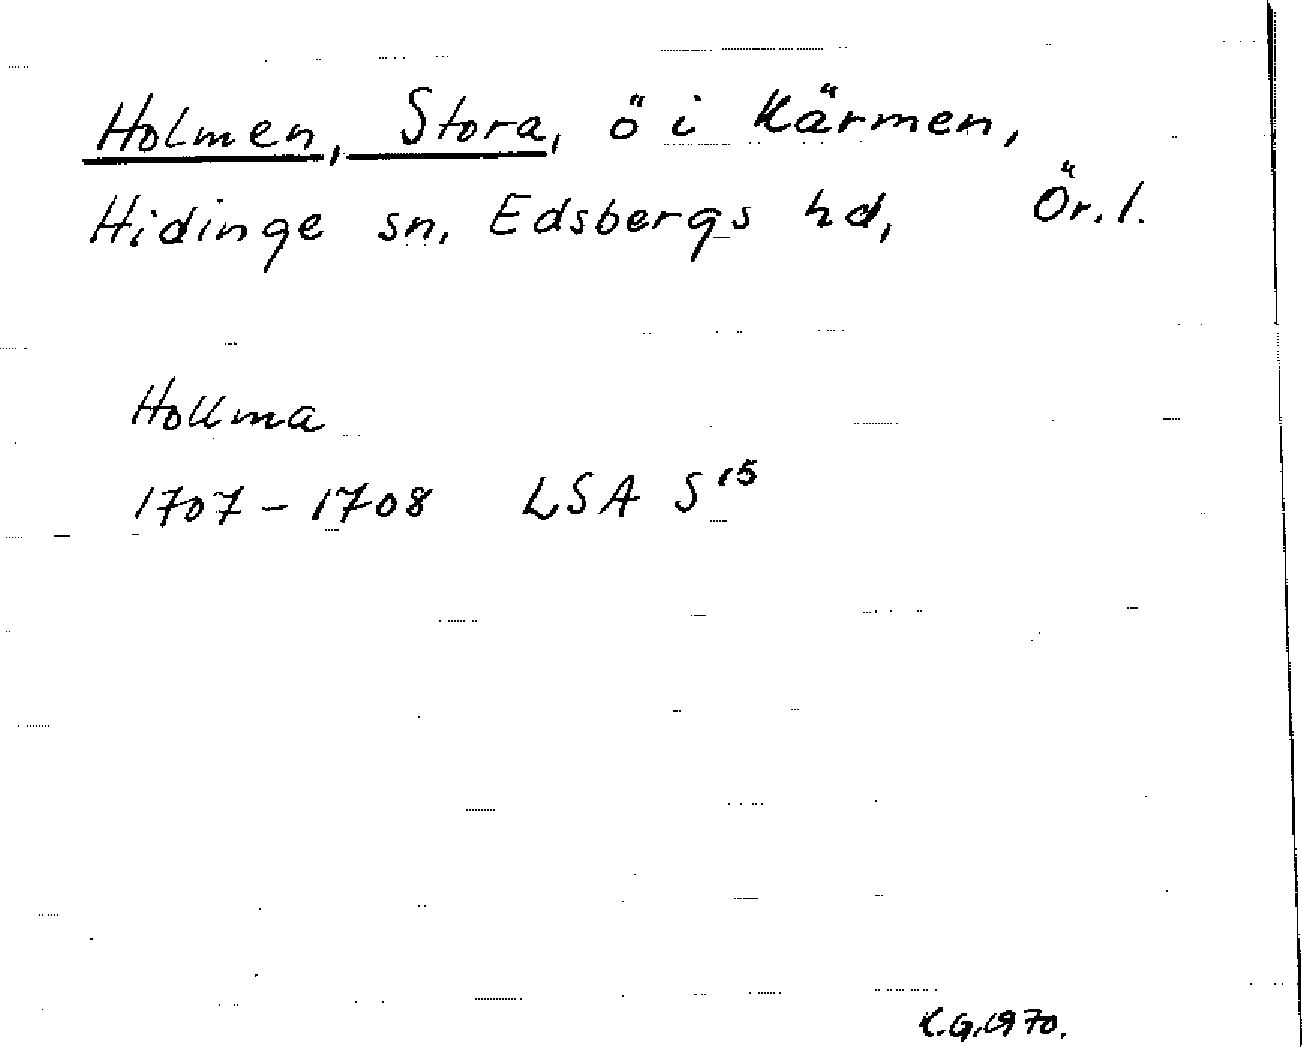 Holmen, Stora, ö i Kärmen,
Hidinge sn, Edsbergs hd, Ör. l.
Hollma
1707-1708 LSA S¹⁵
K.G. 1970.